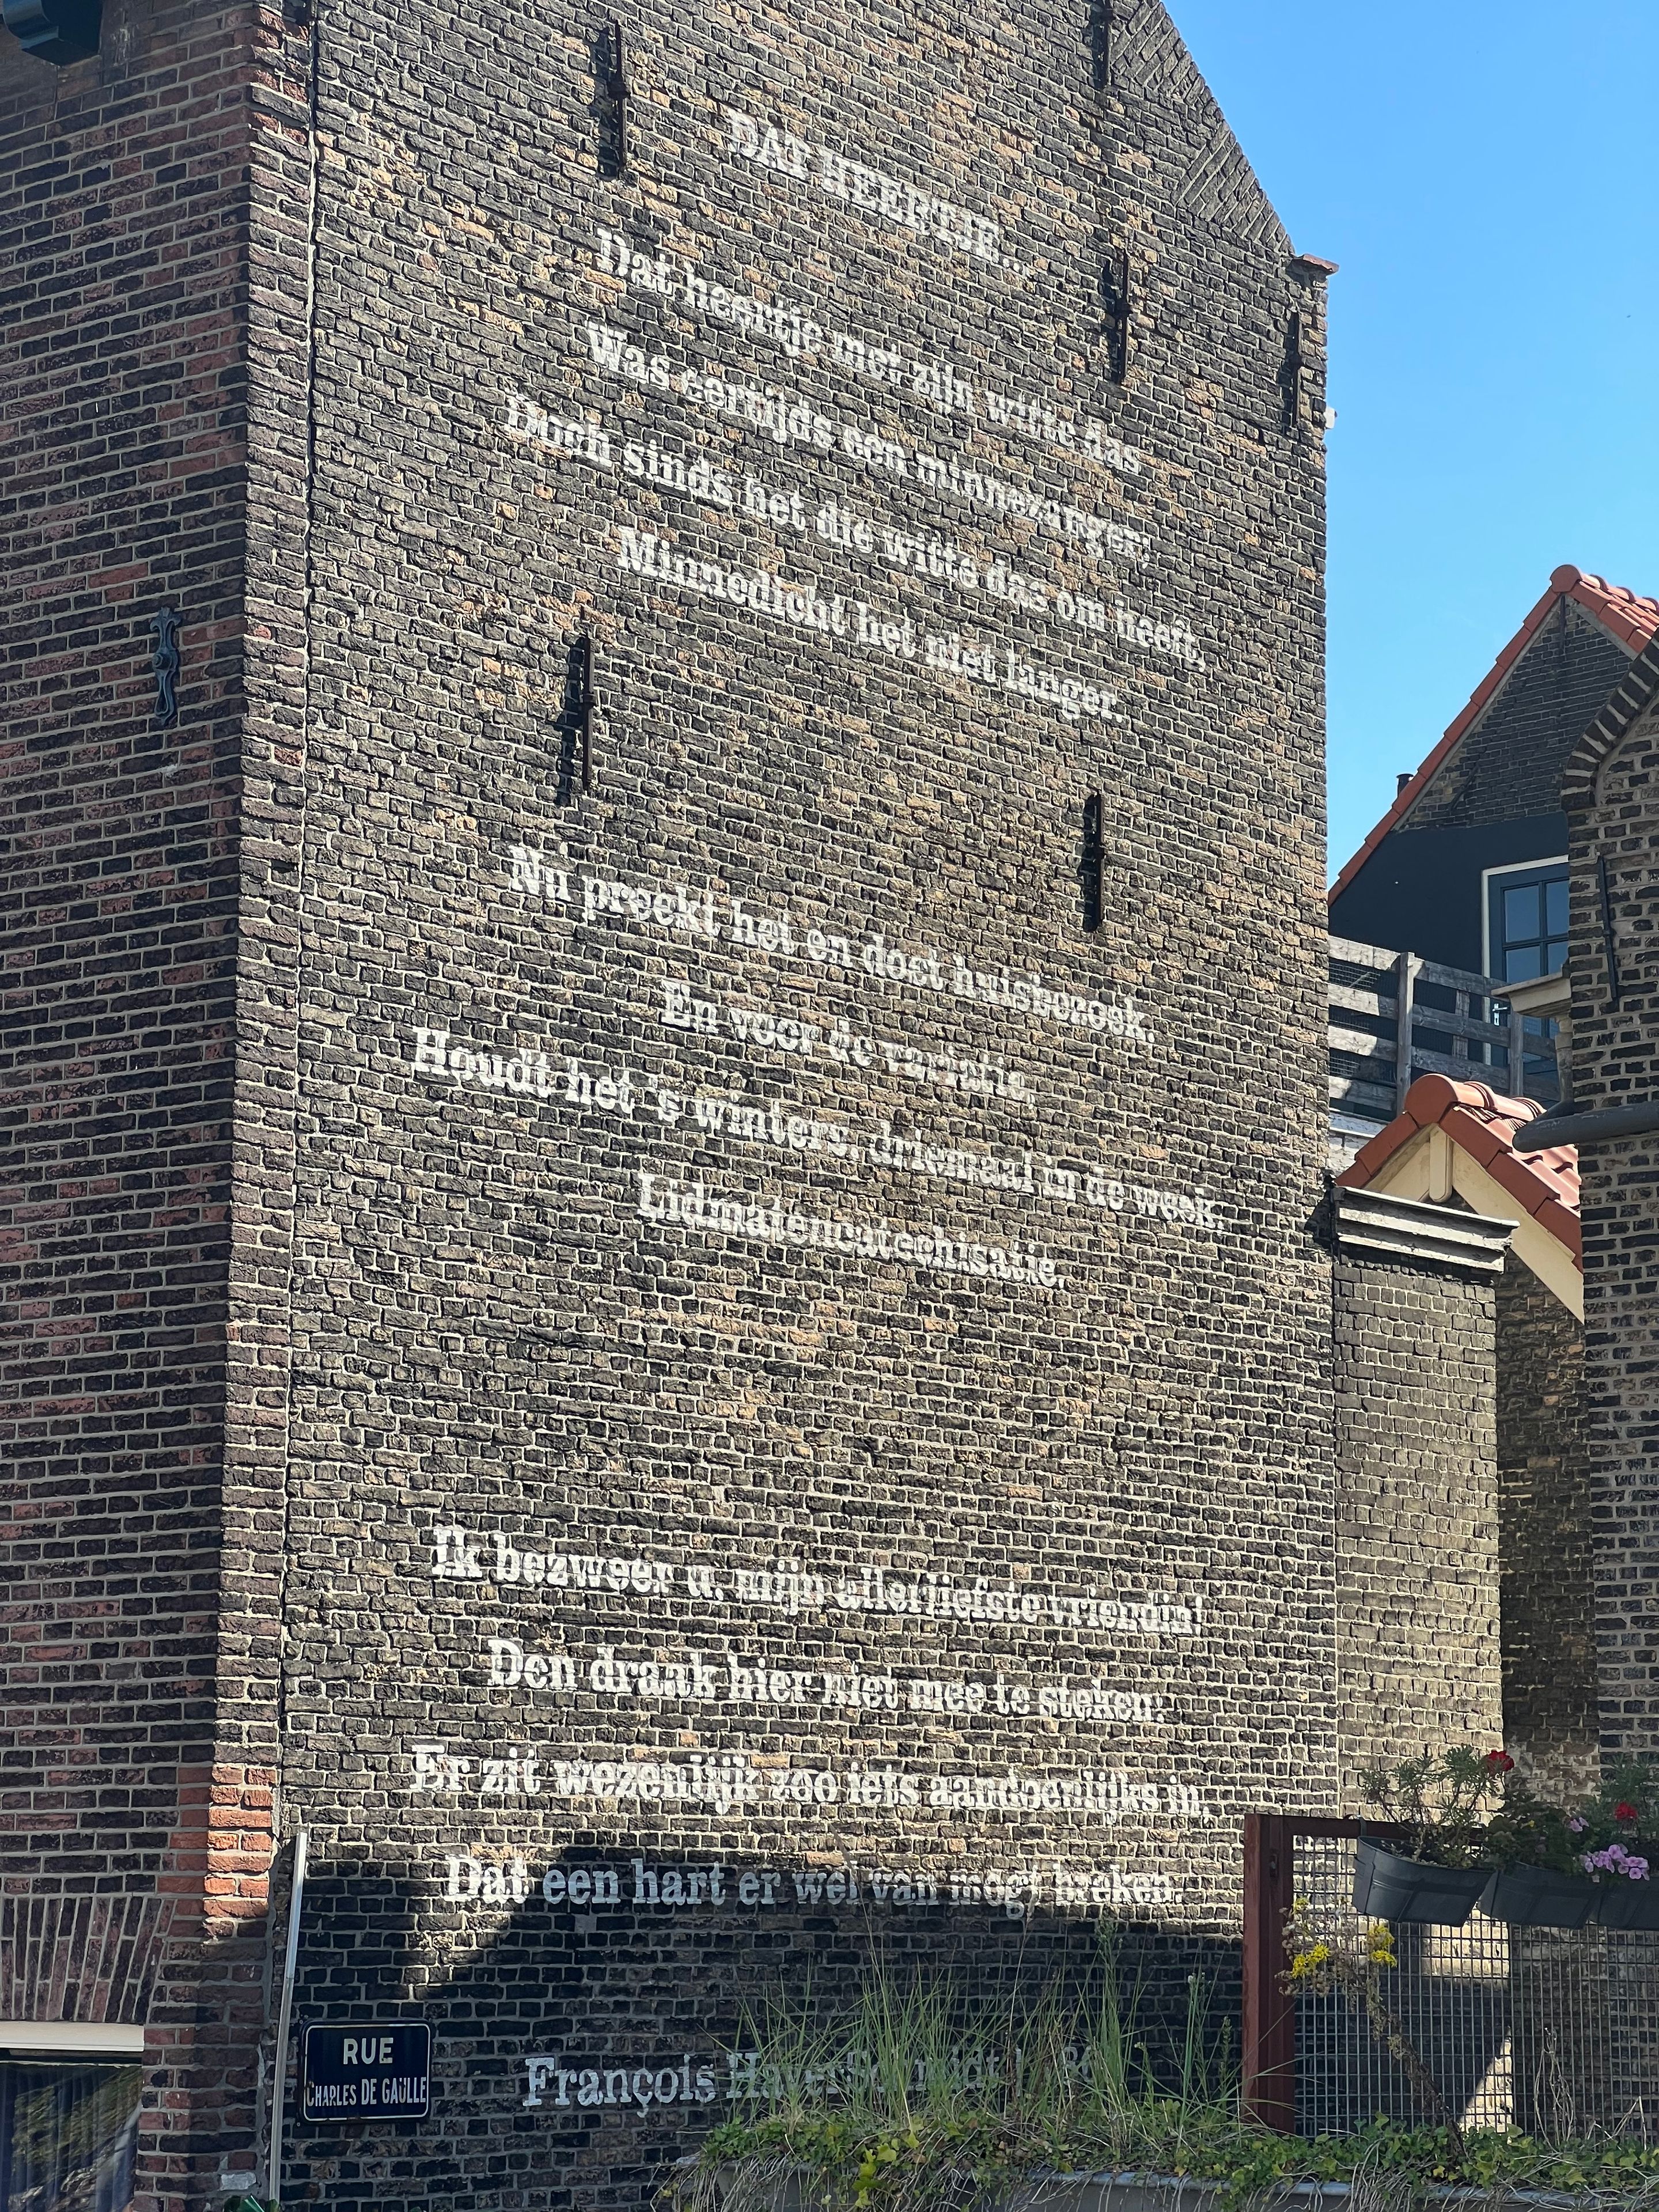 DAT HEERTJE...
Dat heertje met zijn witte das
Was eertijds een minnezanger;
Doch sinds het die witte das om heeft,
Minnedicht het niet langer.
Nu preekt het en doet huisbezoek,
En voor de variatie,
Houdt het 's winters, driemaal in de week,
Lidmatencatechisatie.
Ik bezweer u, mijn allerliefste vriendin!
Den draak hier niet mee te steken:
Er zit wezenlijk zoo iets aandoenlijks in,
Dat een hart er wel van mogt breken.
François HaverSchmidt
RUE
CHARLES DE GAÜLLE